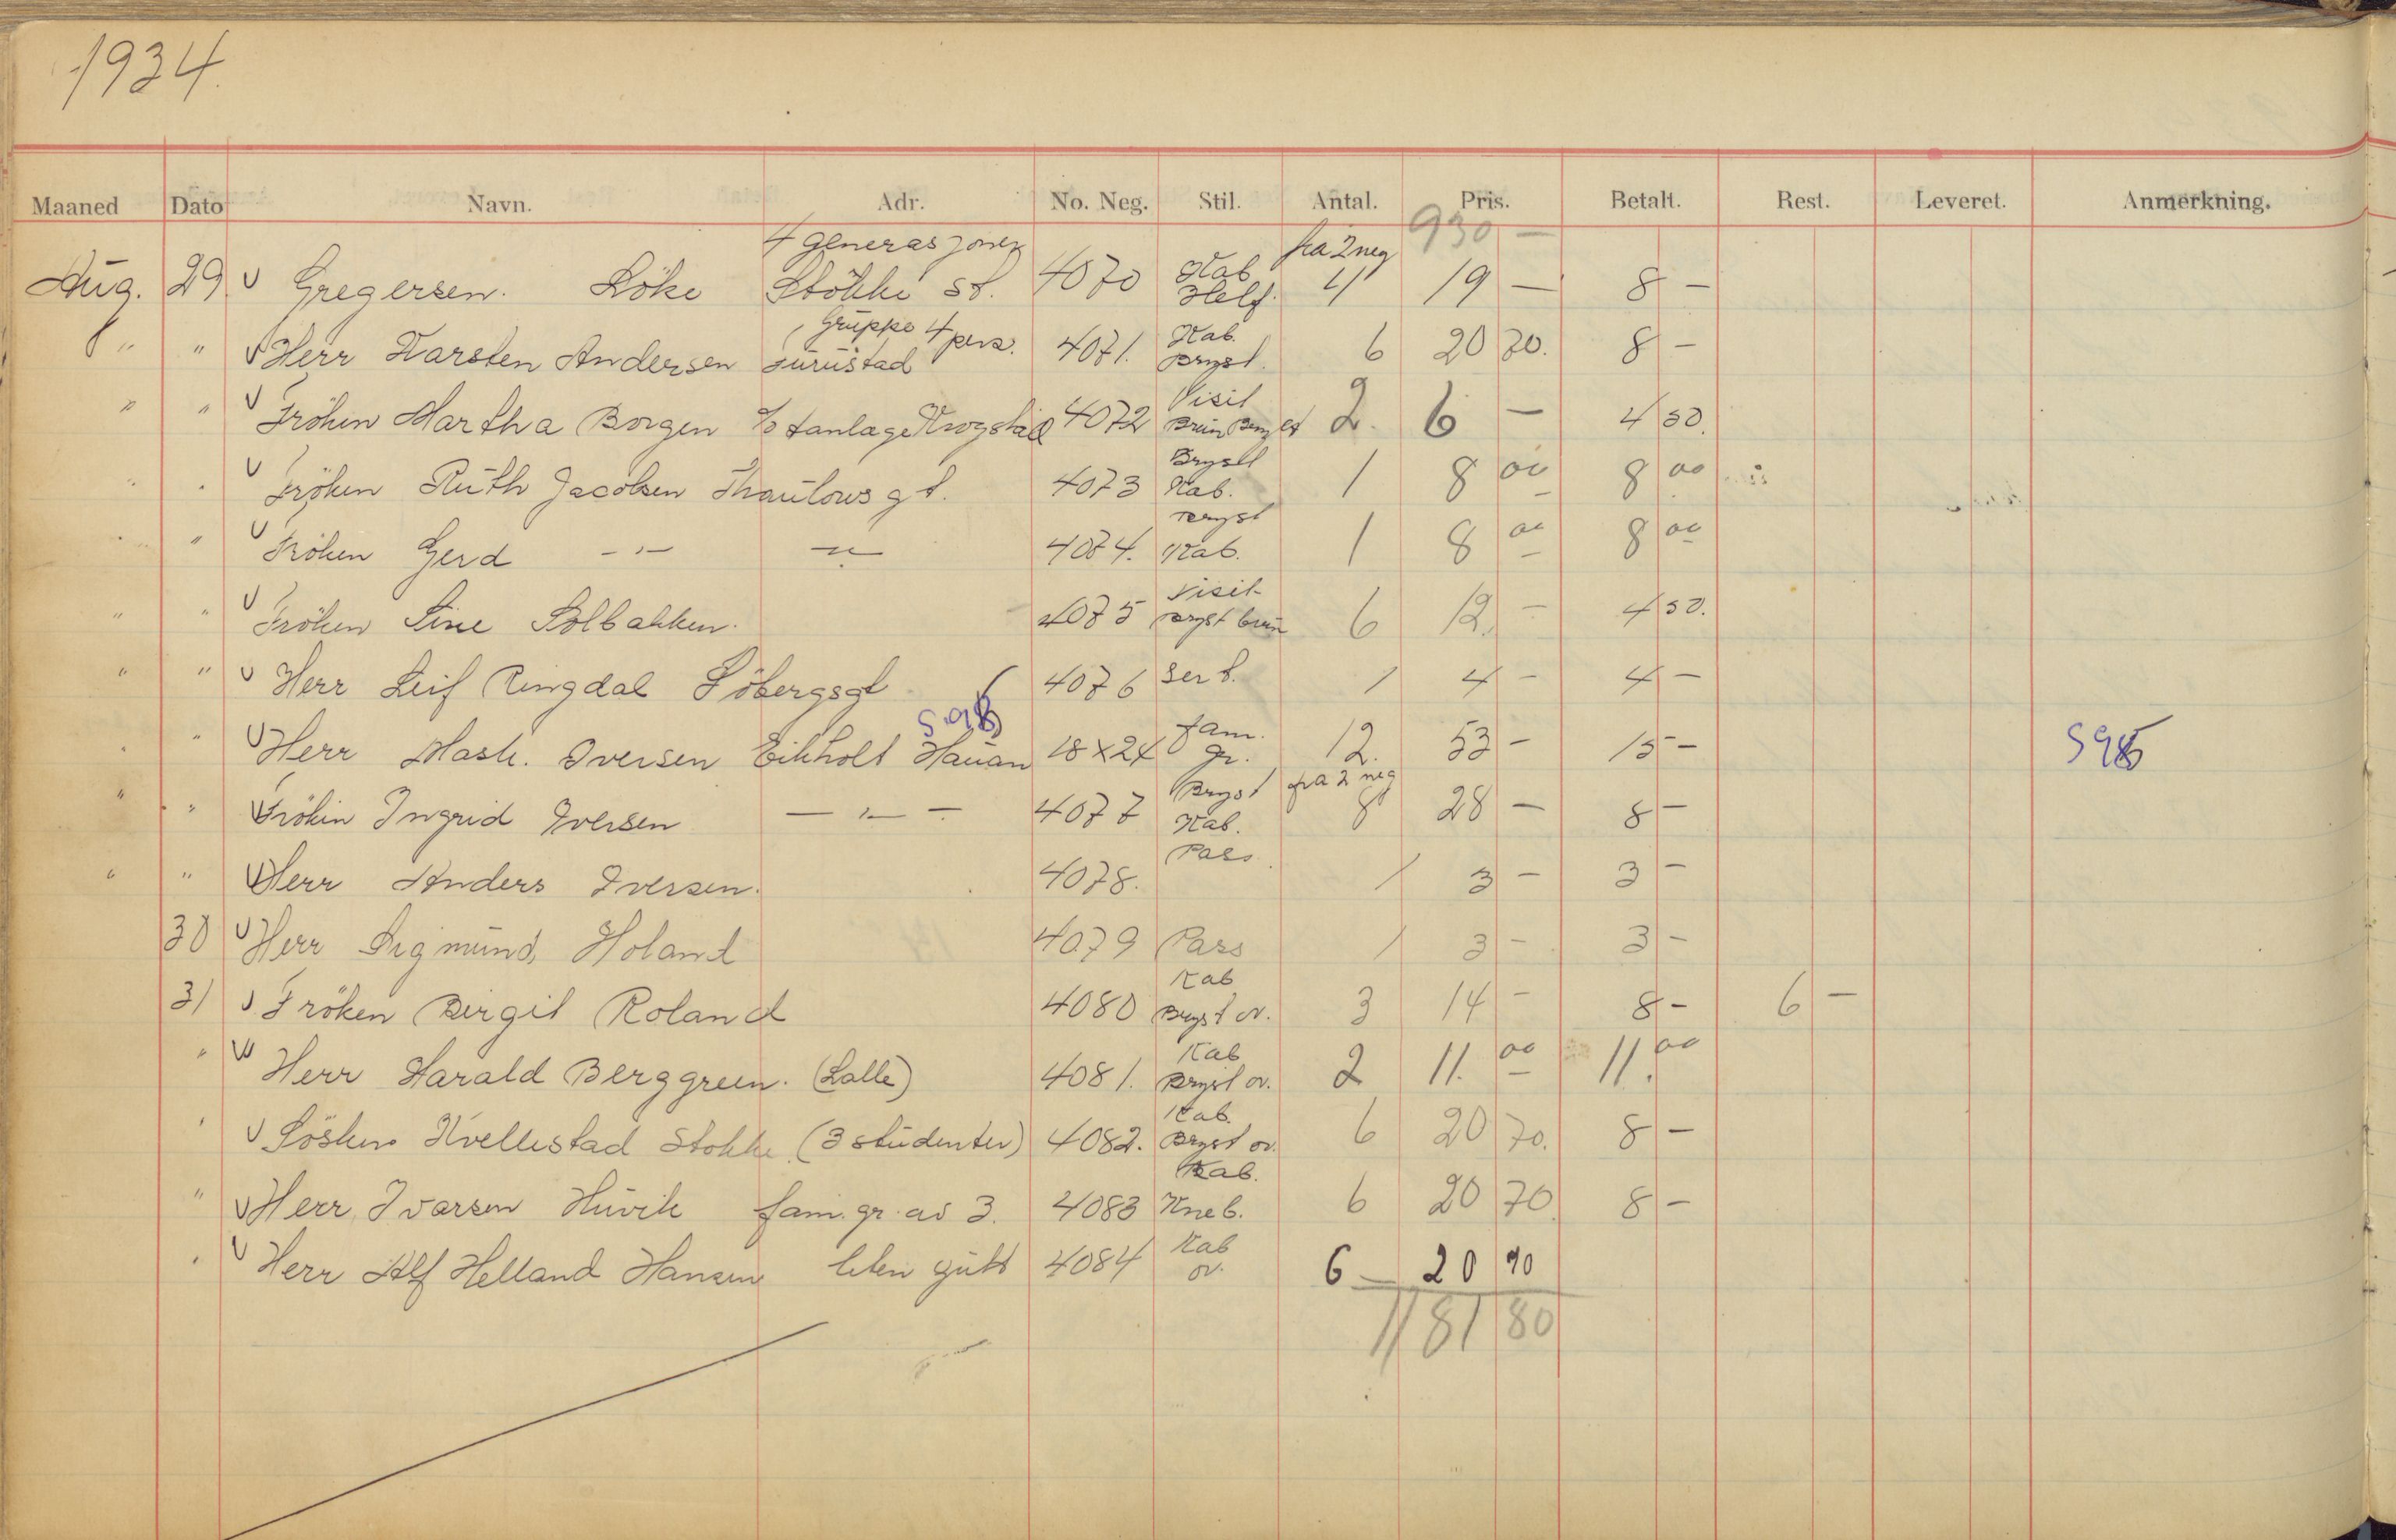 1934.
Maaned Dato Navn. Adr. No. Neg. Stil. Antal. Pris. Betalt. Rest. Leveret. Anmerkning.
4 generasjoner fra 2 neg 930 —
Aug. 29 v Gregersen. Löke Stökke st. 4070 Kab Helf. 4 19 — 8 —
Gruppe 4 pers.
" " v Herr Karsten Andersen Furustad 4071. Kab. Bryst. 6 20 70. 8 —
" " v Fröken Martha Borgen Krogstad 4072 Visit Brun Bryst 2. 6 — 4 50.
" " v Fröken Ruth Jacobsen Thaulows gt. 4073 Bryst Kab. 1 8 00 8 00
" " v Fröken Gerd — " — — " — 4074. Bryst Kab. 1 8 00 8 00
" " v Fröken Sine Solbakken. 4075 Visit Bryst brun 6 12. — 4 50.
" " v Herr Leif Ringdal Söbergsgt 4076 Ser b. 1 4 — 4 —
" " v Herr Mask. Iversen Eikholt Hauan 18 x 24 fam. gr. 12. 53 — 15 —
" " v Frökin Ingrid Iversen — " — 4077 Bryst Kab. fra 2 neg 8 28 — 8 —
" " v Herr Anders Iversen. 4078. Pass 1 3 — 3 —
30 v Herr Sigmund Holand 4079 Pass 1 3 — 3 —
31 v Fröken Birgit Roland 4080 Kab Bryst ov. 3 14 — 8 — 6 —
" v Herr Harald Berggreen. (Lalle) 4081. Kab Bryst ov. 2 11. 00 11. 00
" v Sösken Kvellestad Stokke (3 studenter) 4082. Kab. Bryst ov. 6 20 70. 8 —
" v Herr Ivarsen Huvik fam. gr. av 3. 4083 Kab. Kneb. 6 20 70 8 —
" v Herr Alf Helland Hansen liten gutt 4084 Kab ov. 6 — 20 70
1181 80